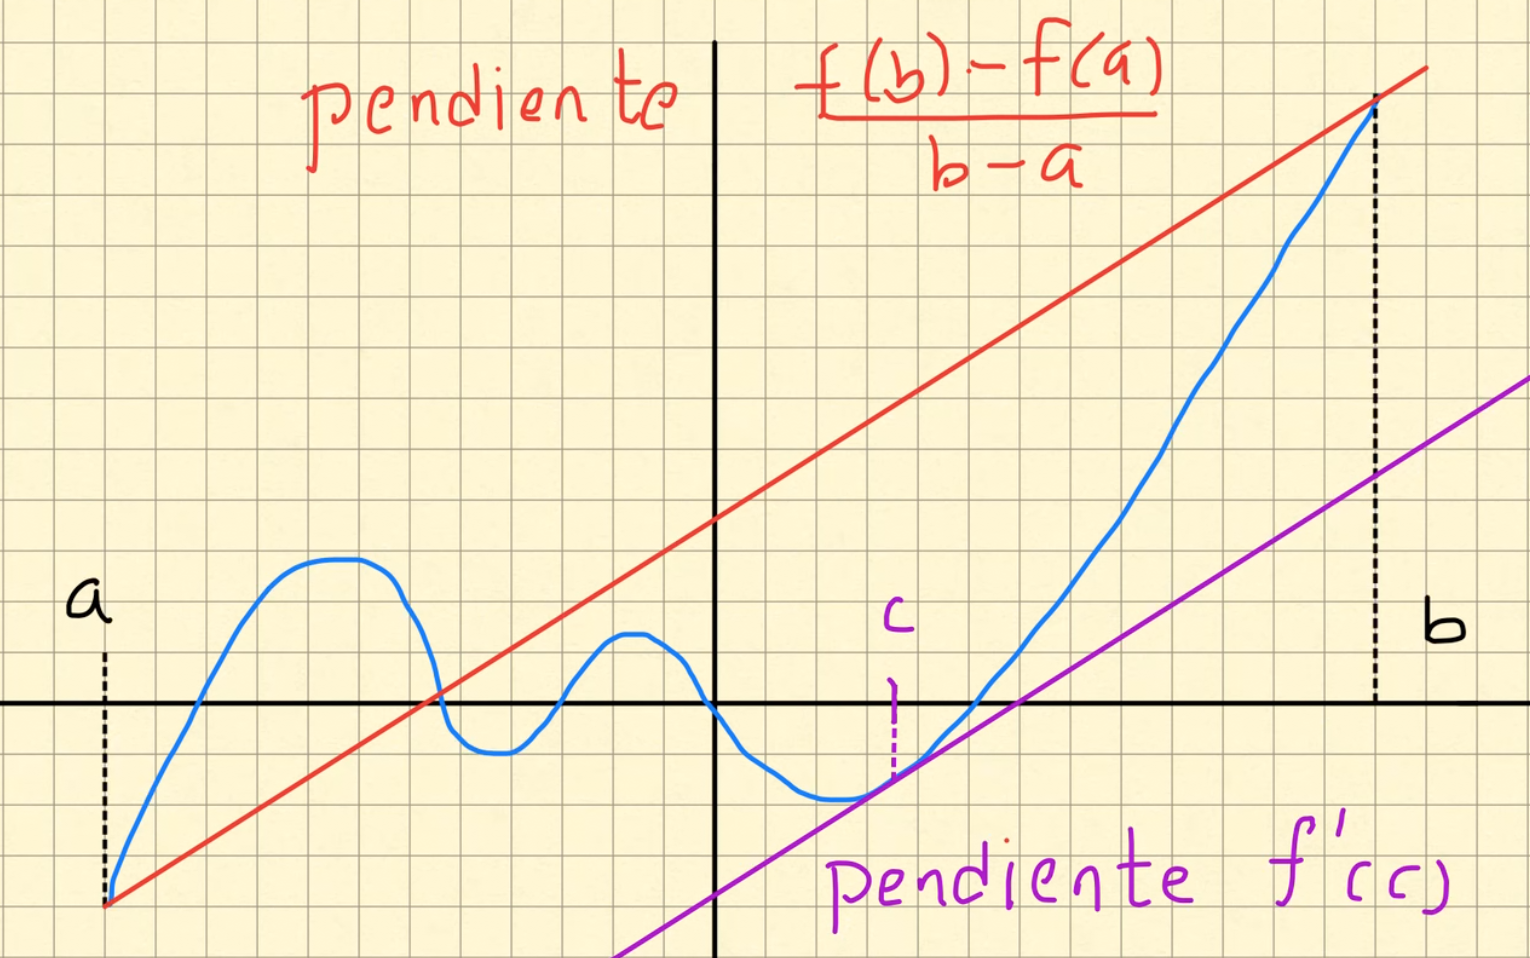 pendiente
f(b) - f(a)
b - a
a
c
b
pendiente f'(c)